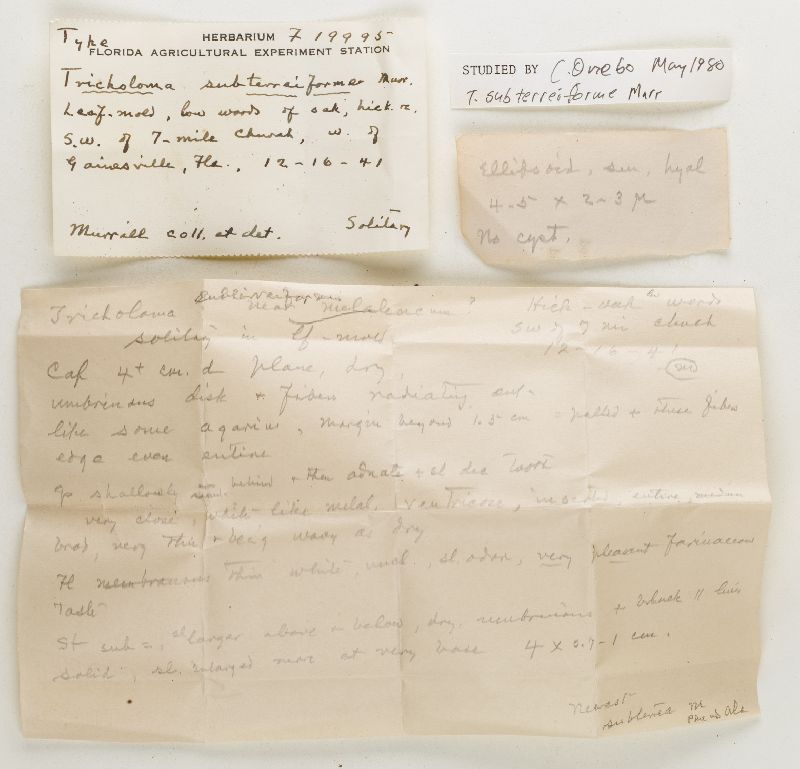 Type HERBARIUM F 19995
FLORIDA AGRICULTURAL EXPERIMENT STATION
Tricholoma subterreiformes Murr.
Leaf-mold, low woods of oak, hick. &.
S.w. of 7-mile Church, w. of
Gainesville, Fla., 12-16-41
Murrill coll. et det. Solitary
STUDIED BY C. Ovrebo May 1980
T. subterreiforme Murr
Ellipsoid, sm, hyal
4-5 x 2-3 µ
No cyst.
Tricholoma subterreiformis near melaleucum? Hick-oak woods
solitary in lf-mold SW of 7 mi church
12-16-41
Cap 4+ cm. d plane, dry,
umbrinous disk + fibers radiating out-
like some agarics, margin beyond 1.5 cm = pallid + these fibers
edge even entire
shallowly behind + then adnate + sl dec tooth
very close, white like melal. ventricose, inserted, entire, medium
broad, very thin + being wavy as dry
Fl membranous thin white, uncl., sl. odor, very pleasant farinaceous
Taste
St sub =, sl larger above + below, dry, umbrinous + black || lines
solid, sl. enlarged more at very base 4 x 0.7-1 cm.
Newast
subterrea